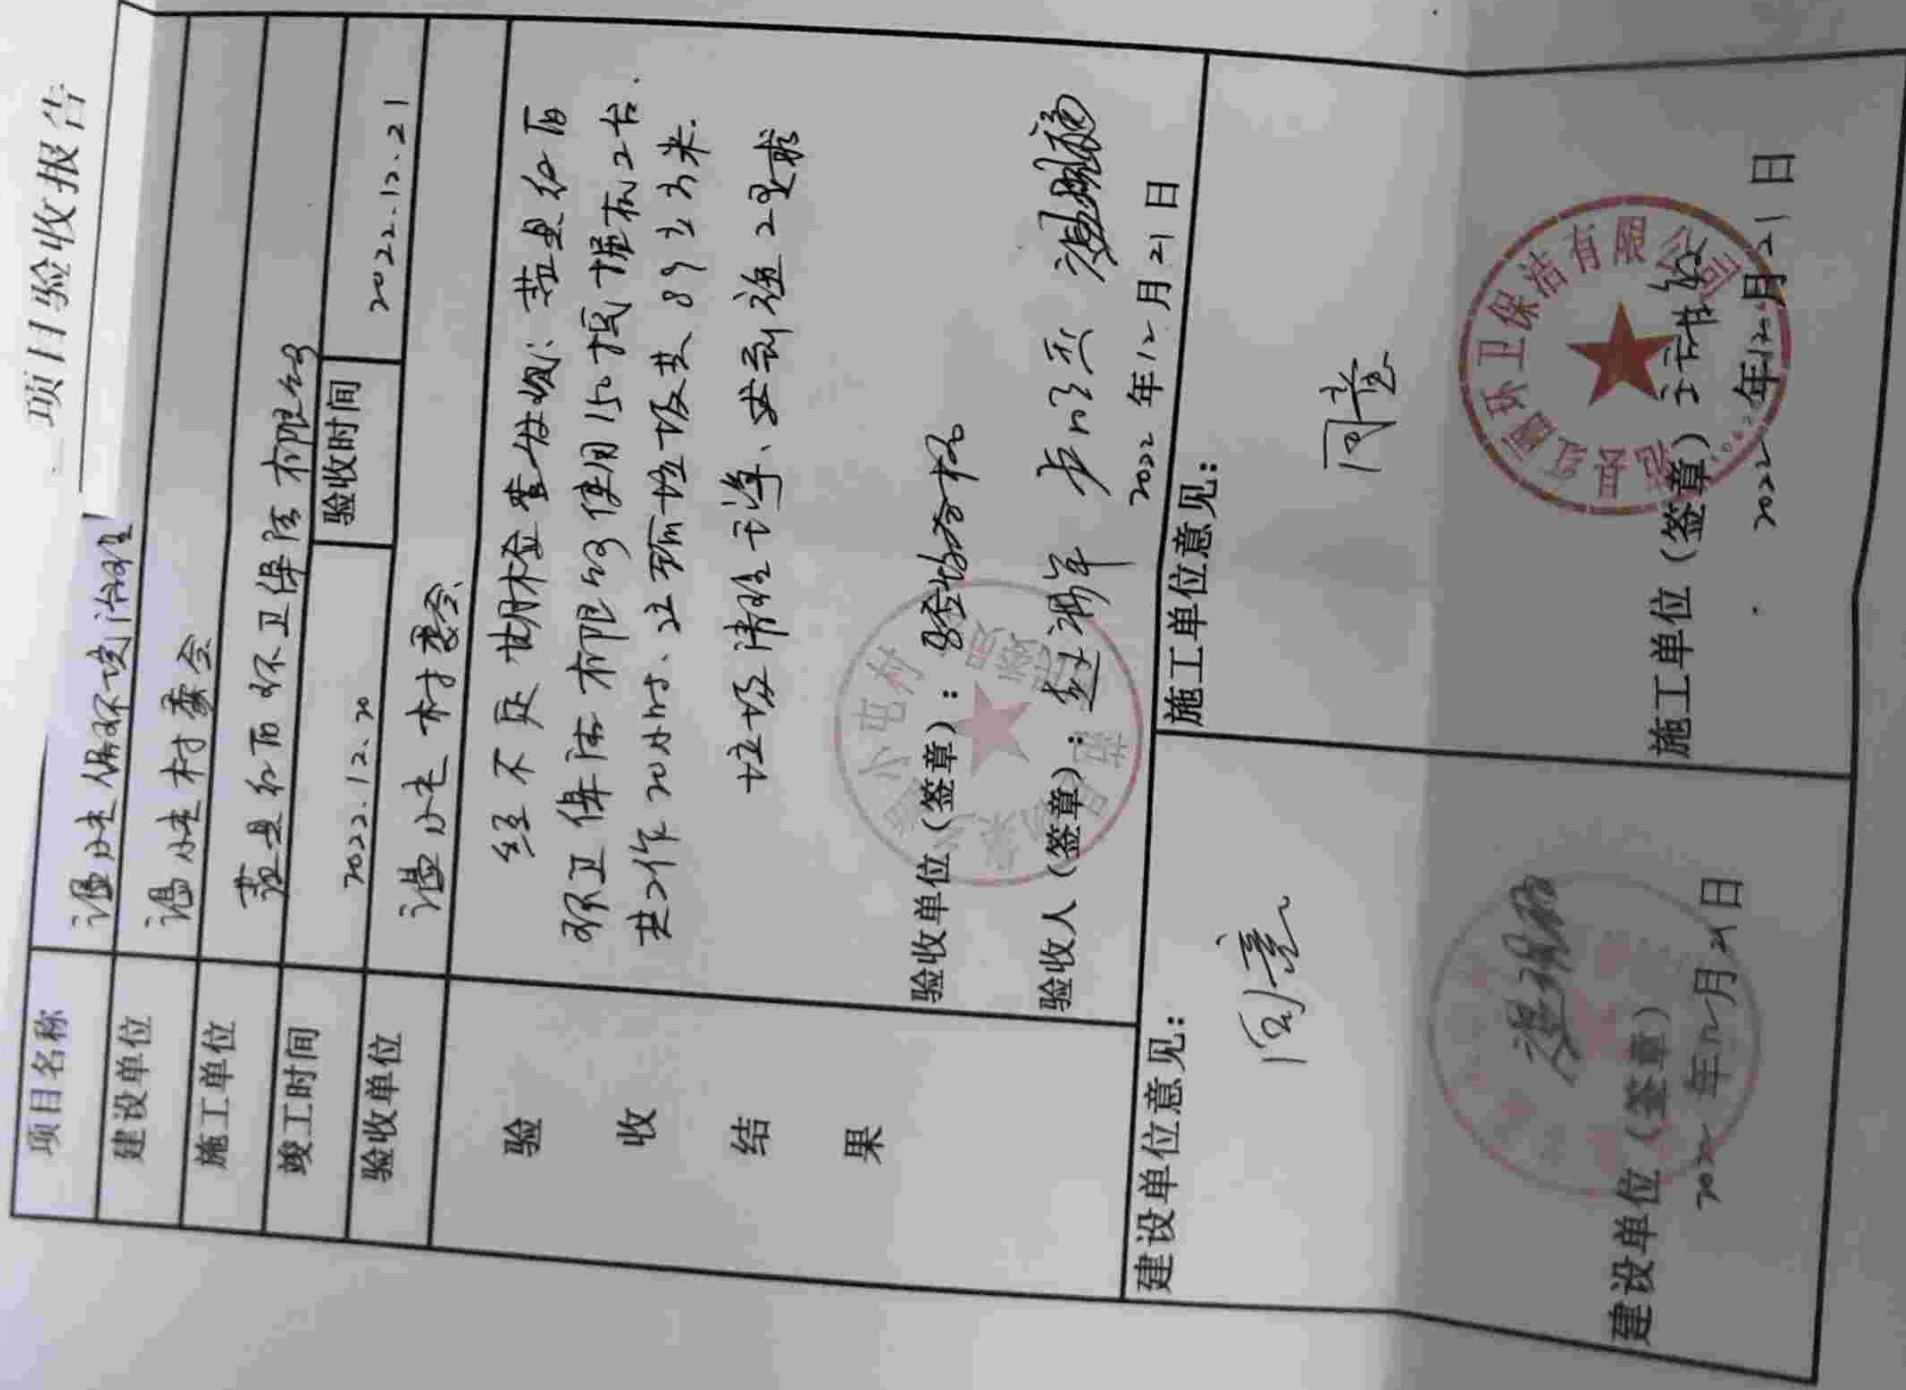 项目验收报告
项目名称 温小屯村环境治理
建设单位 温小屯村委会
施工单位 范县红丽环卫保洁有限公司
竣工时间 2022.12.20 验收时间 2022.12.21
验收单位 温小屯村委会
验收结果
经不定期检查发现:范县红丽
环卫保洁有限公司使用150挖掘机2台.
共工作20小时、垃圾共89立方米.
垃圾清理干净、达到施工要求
验收单位(签章): 验收合格
验收人(签章):
2022年12月21日
建设单位意见:
同意
建设单位(签章)
2022年12月21日
施工单位意见:
同意
施工单位(签章)
2022年12月21日
小屯村
范县红丽环卫保洁有限公司